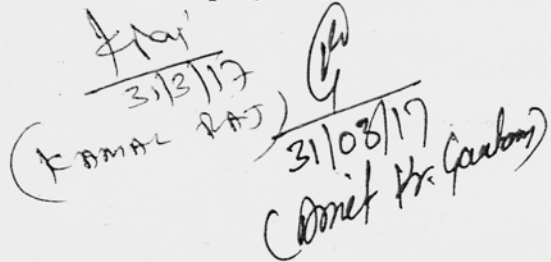 KRaj
31/3/17
(KAMAL RAJ)
31/03/17
(Amit Kr. Gautam)